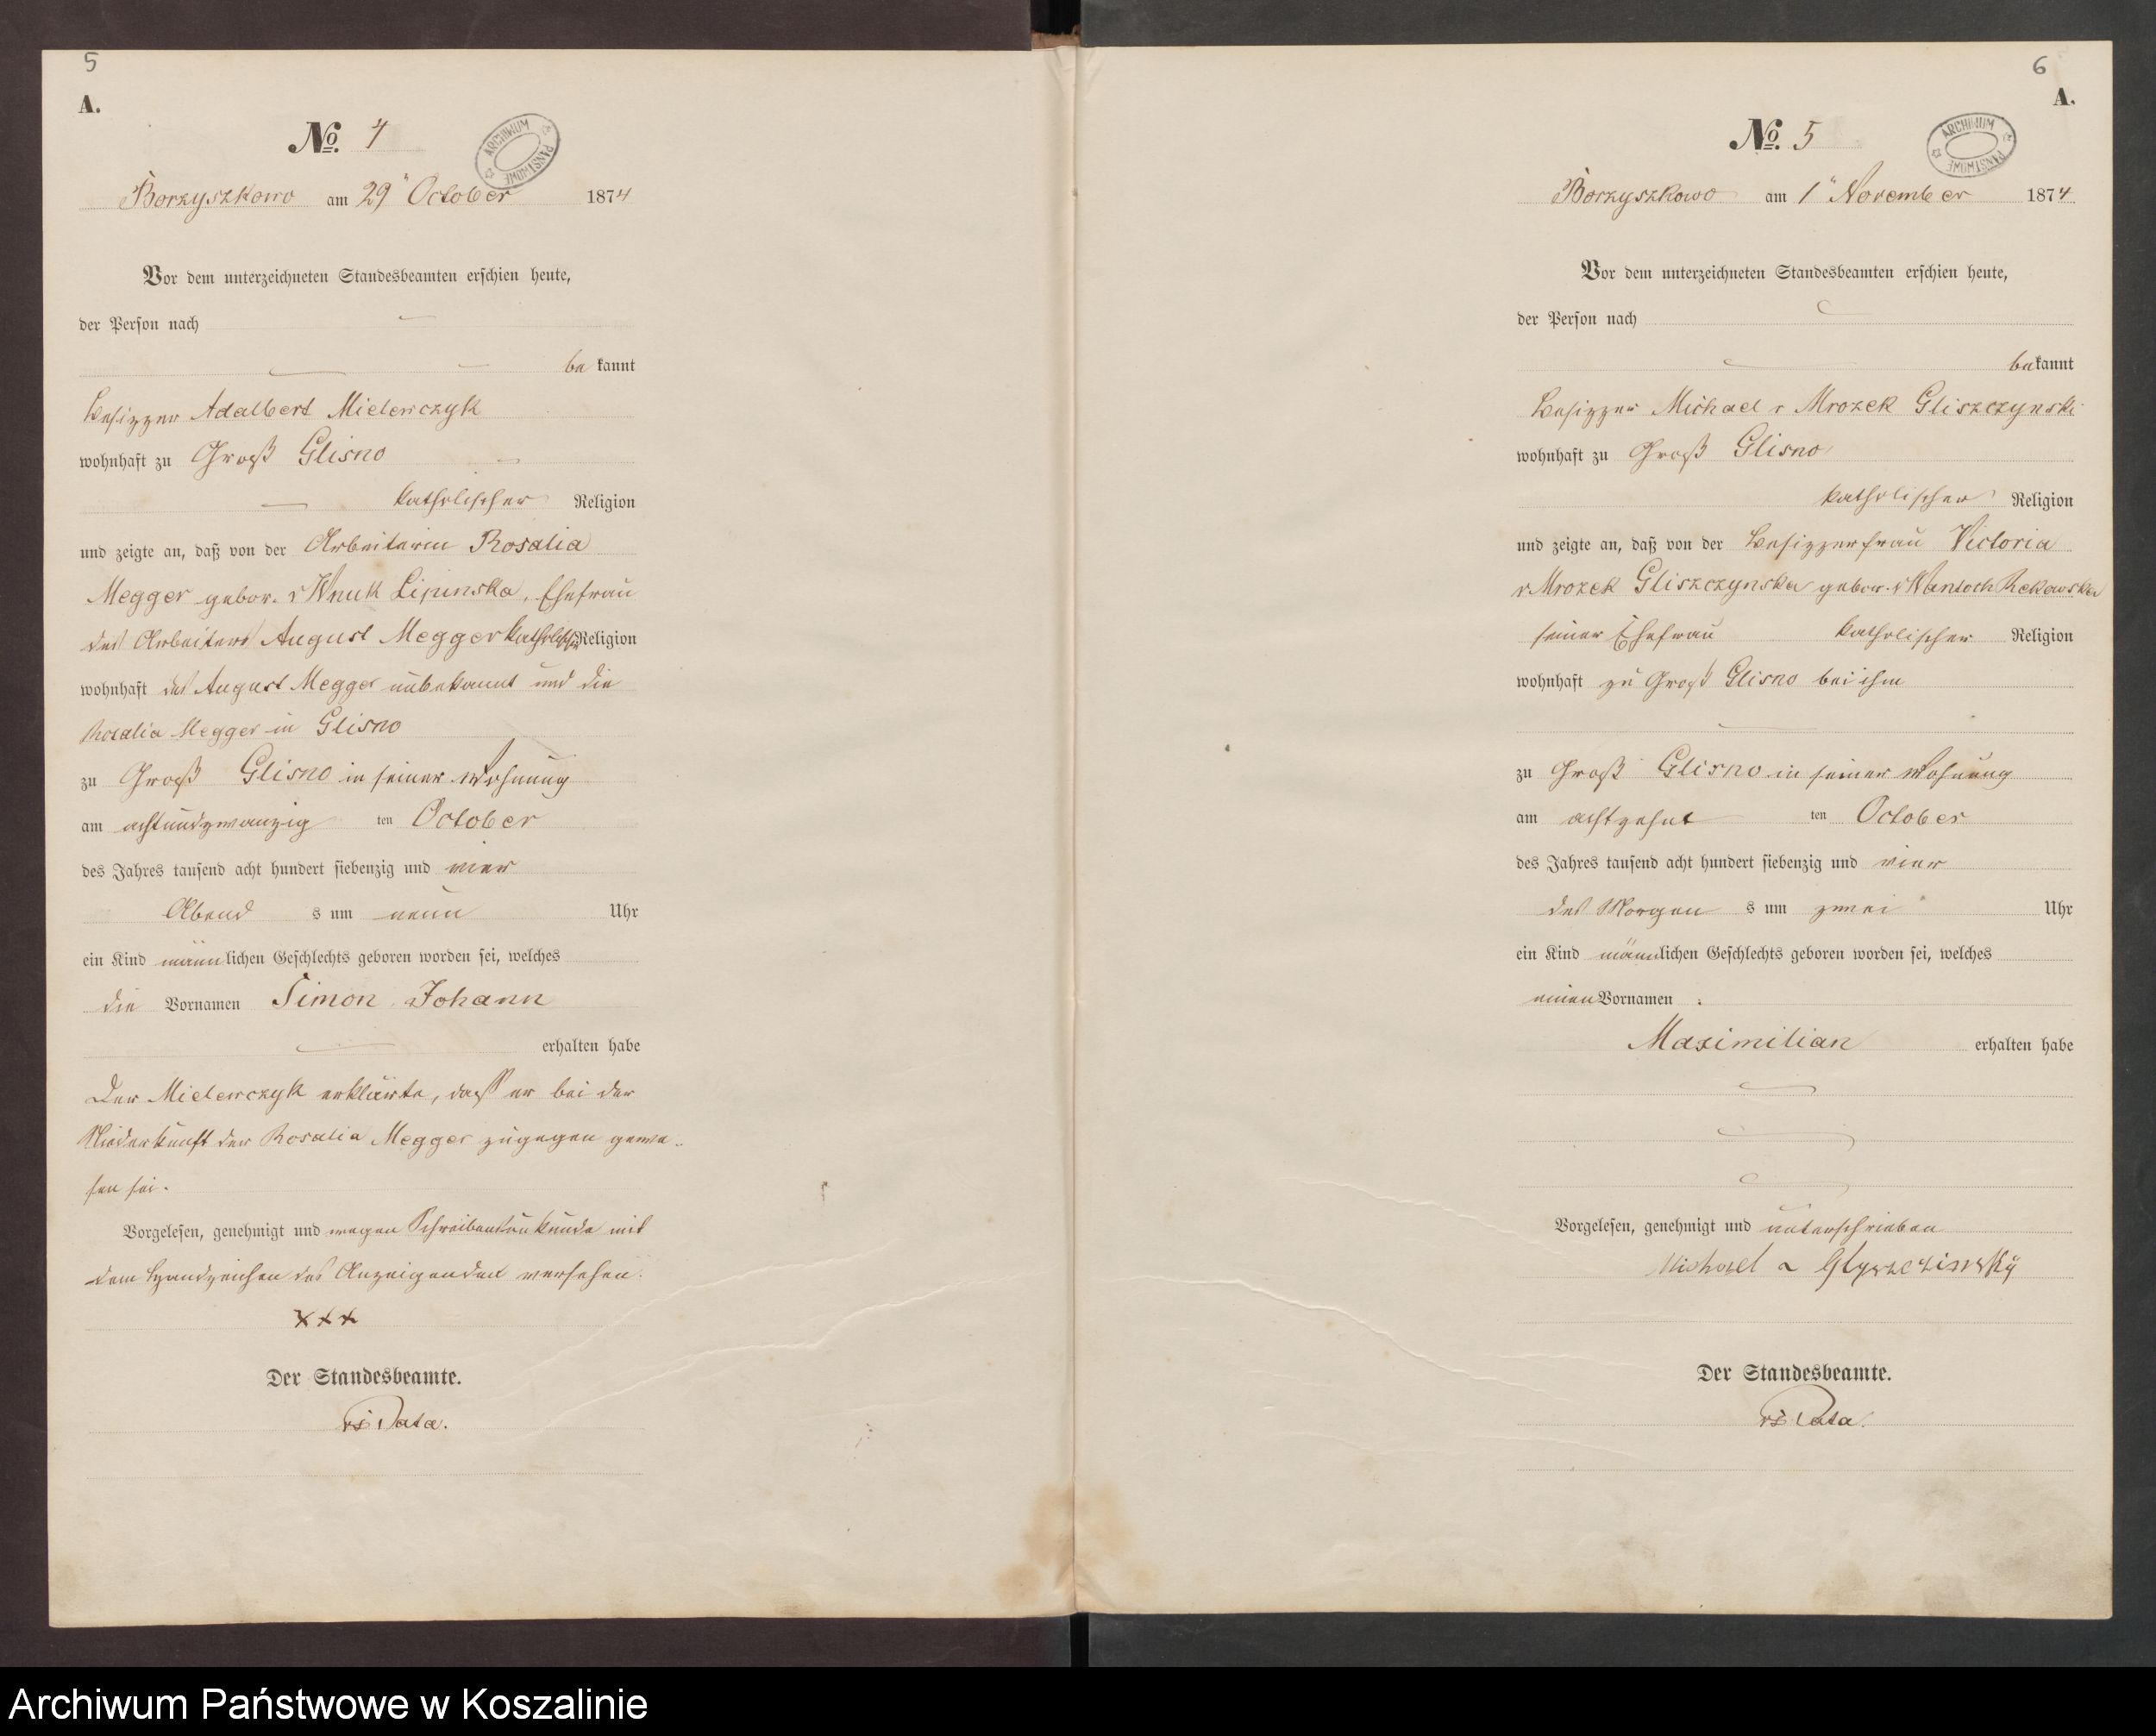 5
A.
No. 4
ARCHIWUM PAŃSTWOWE
Borzyszkowo am 29" October 1874
Vor dem unterzeichneten Standesbeamten erschien heute,
der Person nach
bekannt
Besizzer Adalbert Mielewczyk
wohnhaft zu Groß Glisno
katholischer Religion
und zeigte an, daß von der Arbeiterin Rosalia
Megger gebor. v Wnuk Lipinska, Ehefrau
des Arbeiters August Megger katholischer Religion
wohnhaft des August Megger unbekannt und die
Rosalia Megger in Glisno
zu Groß Glisno in seiner Wohnung
am achtundzwanzig ten October
des Jahres tausend acht hundert siebenzig und vier
Abend s um neun Uhr
ein Kind männlichen Geschlechts geboren worden sei, welches
die Vornamen Simon Johann
erhalten habe
Der Mielewczyk erklärte, daß er bei der
Niederkunft der Rosalia Megger zugegen gewe-
sen sei.
Vorgelesen, genehmigt und wegen Schreibensunkunde mit
dem Handzeichen des Anzeigenden versehen.
xxx
Der Standesbeamte.
Pata.
6
A.
No. 5
ARCHIWUM PAŃSTWOWE
Borzyszkowo am 1" November 1874
Vor dem unterzeichneten Standesbeamten erschien heute,
der Person nach
bekannt
Besizzer Michael v Mrozek Gliszczynski
wohnhaft zu Groß Glisno
katholischer Religion
und zeigte an, daß von der Besizzerfrau Victoria
v Mrozek Gliszczynska gebor. v Wantoch Rekowska
seiner Ehefrau katholischer Religion
wohnhaft zu Groß Glisno bei ihm
zu Groß Glisno in seiner Wohnung
am achtzehnt ten October
des Jahres tausend acht hundert siebenzig und vier
des Morgen s um zwei Uhr
ein Kind männlichen Geschlechts geboren worden sei, welches
einen Vornamen :
Maximilian erhalten habe
Vorgelesen, genehmigt und unterschrieben
Michael v Glyszczinsky
Der Standesbeamte.
Pata.
Archiwum Państwowe w Koszalinie